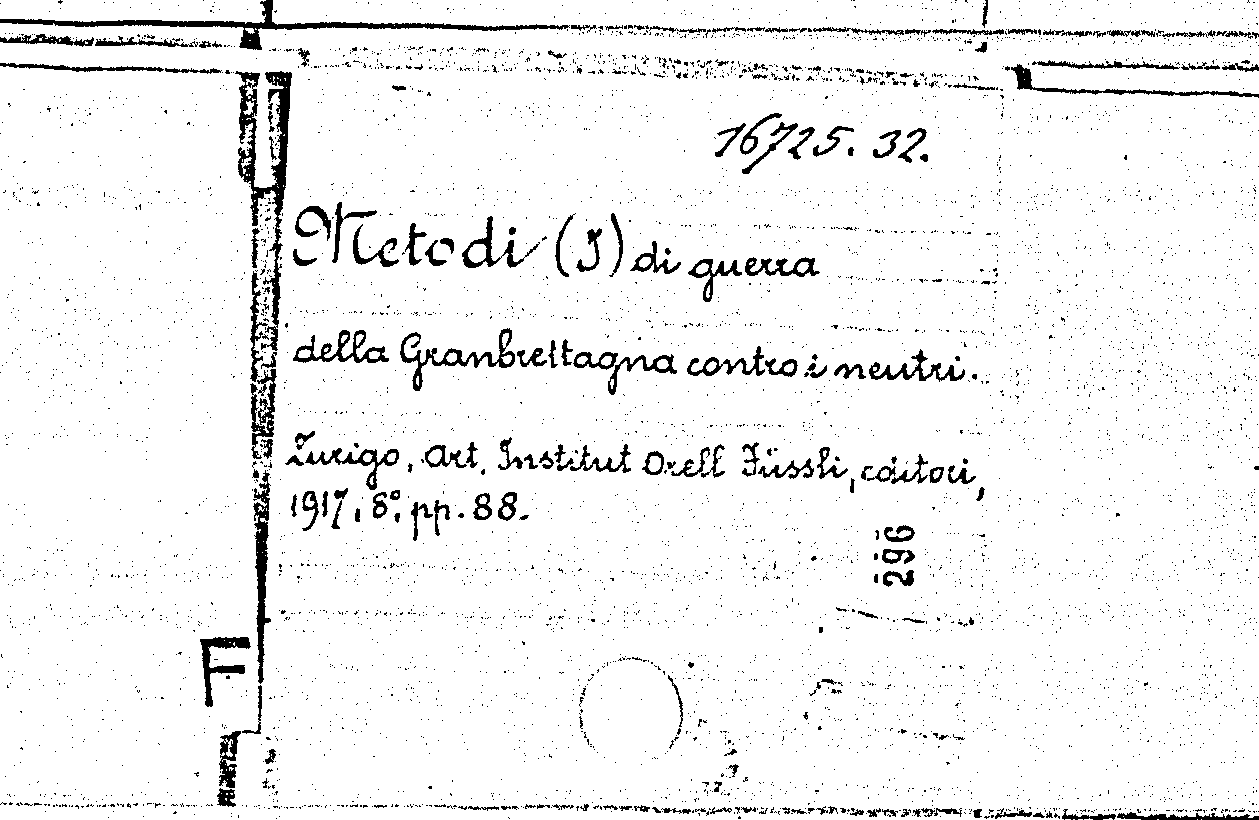 16725. 32.
Metodi (I) di guerra
della Granbrettagna contro i neutri.
Zurigo, Art. Institut Orell Füssli, editori,
1917, 8º, pp. 88.
296
F